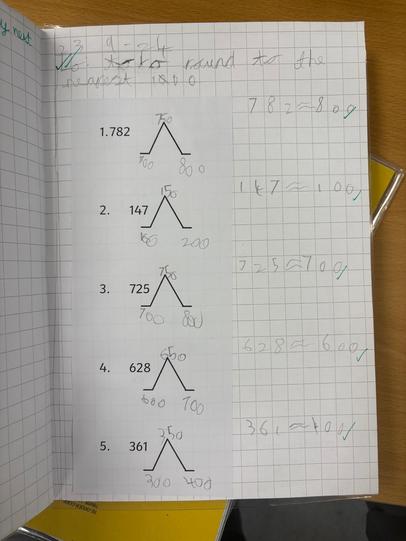 y nest
23.9-24
round to the
nearest 1000
750
1. 782
700 800
782≈800
150
2. 147
100 200
147≈100
750
3. 725
700 800
725≈700
650
4. 628
600 700
628≈600
350
5. 361
300 400
361≈400